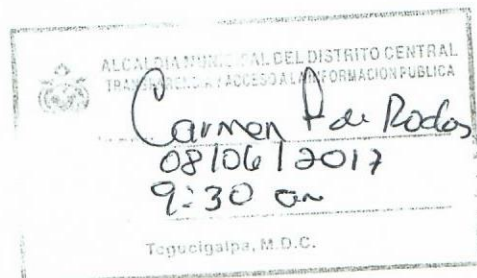 ALCALDIA MUNICIPAL DEL DISTRITO CENTRAL
TRANSPARENCIA Y ACCESO A LA INFORMACION PUBLICA
Carmen P de Rodas
08/06/2017
9:30 am
Tegucigalpa, M.D.C.